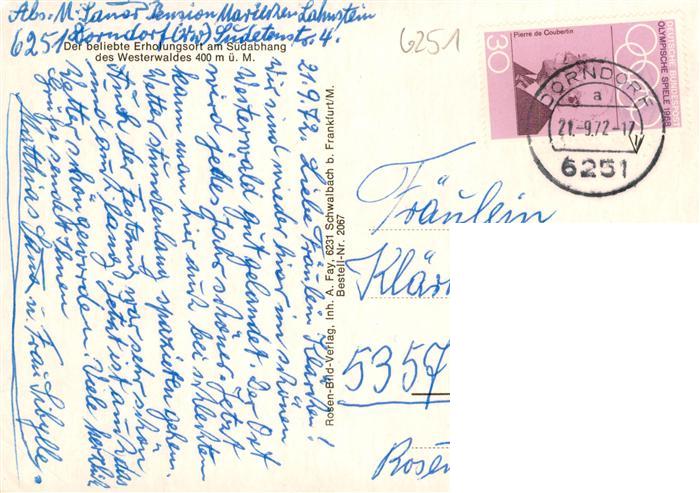 Abs. M. Pension Lahnstein
6251 Dorndorf (Ww) Sudetenstr. 4.
Der beliebte Erholungsort am Südabhang
des Westerwaldes 400 m ü. M.
6251
30
Pierre de Coubertin
DEUTSCHE BUNDESPOST
OLYMPISCHE SPIELE 1968
DORNDORF
a
21.-9.72-17
6251
21.9.72. Liebe Fräulein Klärchen!
Wir sind wieder hier im schönen
Westerwald gut gelandet. Der Ort
wird jedes Jahr schöner. Jetzt
kann man hier auch bei schlechtem
Wetter stundenlang spazieren gehen.
Auch der Festzug war sehr schön
und auch lang. Jetzt ist auch das
Wetter schön geworden. Viele herzliche
Grüße sendet Ihnen
Matthias u. Frau Sibylle.
Rosen-Bild-Verlag, Inh. A. Fay, 6231 Schwalbach b. Frankfurt/M.
Bestell-Nr. 2067
Fräulein
Klär
5357
Rosen